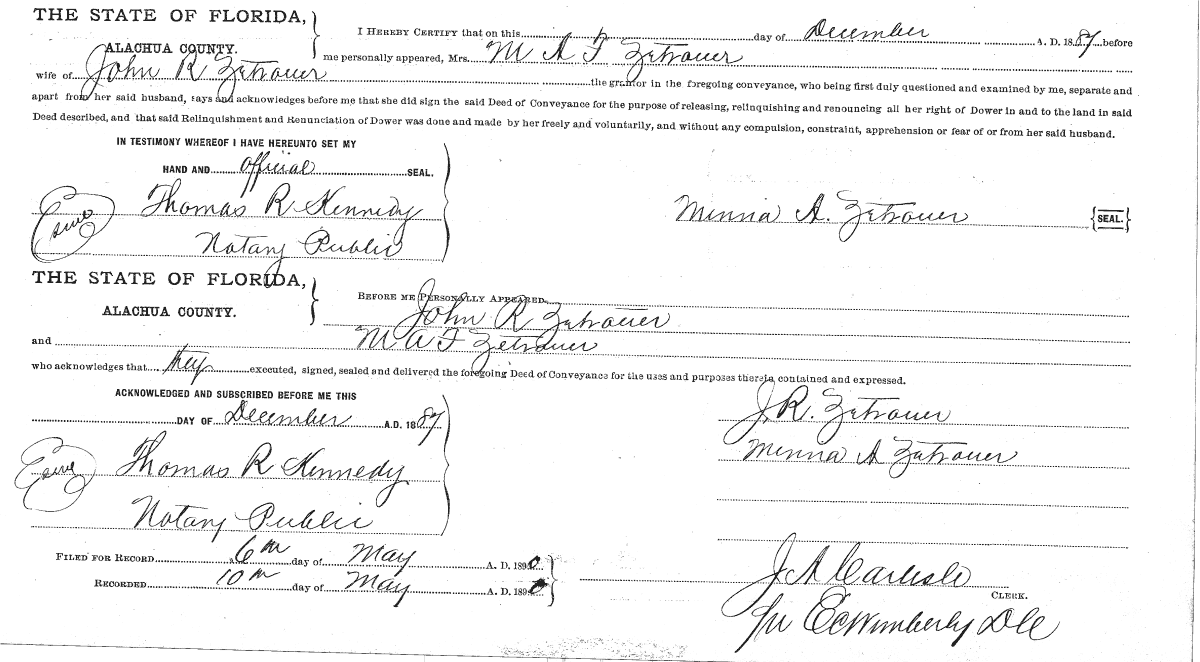 THE STATE OF FLORIDA,
ALACHUA COUNTY.
I HEREBY CERTIFY that on this day of December A. D. 1887 before
me personally appeared, Mrs. M A F Zetrouer
wife of John R Zetrouer the grantor in the foregoing conveyance, who being first duly questioned and examined by me, separate and
apart from her said husband, says and acknowledges before me that she did sign the said Deed of Conveyance for the purpose of releasing, relinquishing and renouncing all her right of Dower in and to the land in said
Deed described, and that said Relinquishment and Renunciation of Dower was done and made by her freely and voluntarily, and without any compulsion, constraint, apprehension or fear of or from her said husband.
IN TESTIMONY WHEREOF I HAVE HEREUNTO SET MY
HAND AND official SEAL.
Thomas R Kennedy
Notary Public
Minna A. Zetrouer {SEAL.}
THE STATE OF FLORIDA,
ALACHUA COUNTY.
BEFORE ME PERSONALLY APPEARED John R Zetrouer
and M A F Zetrouer
who acknowledges that they executed, signed, sealed and delivered the foregoing Deed of Conveyance for the uses and purposes therein contained and expressed.
ACKNOWLEDGED AND SUBSCRIBED BEFORE ME THIS
DAY OF December A.D. 1887
Thomas R Kennedy
Notary Public
J. R. Zetrouer
Minna A Zetrouer
FILED FOR RECORD 6th day of May A. D. 1890
RECORDED 10th day of May A. D. 1890
J A Carlisle
CLERK.
pr E C Wimberly D C